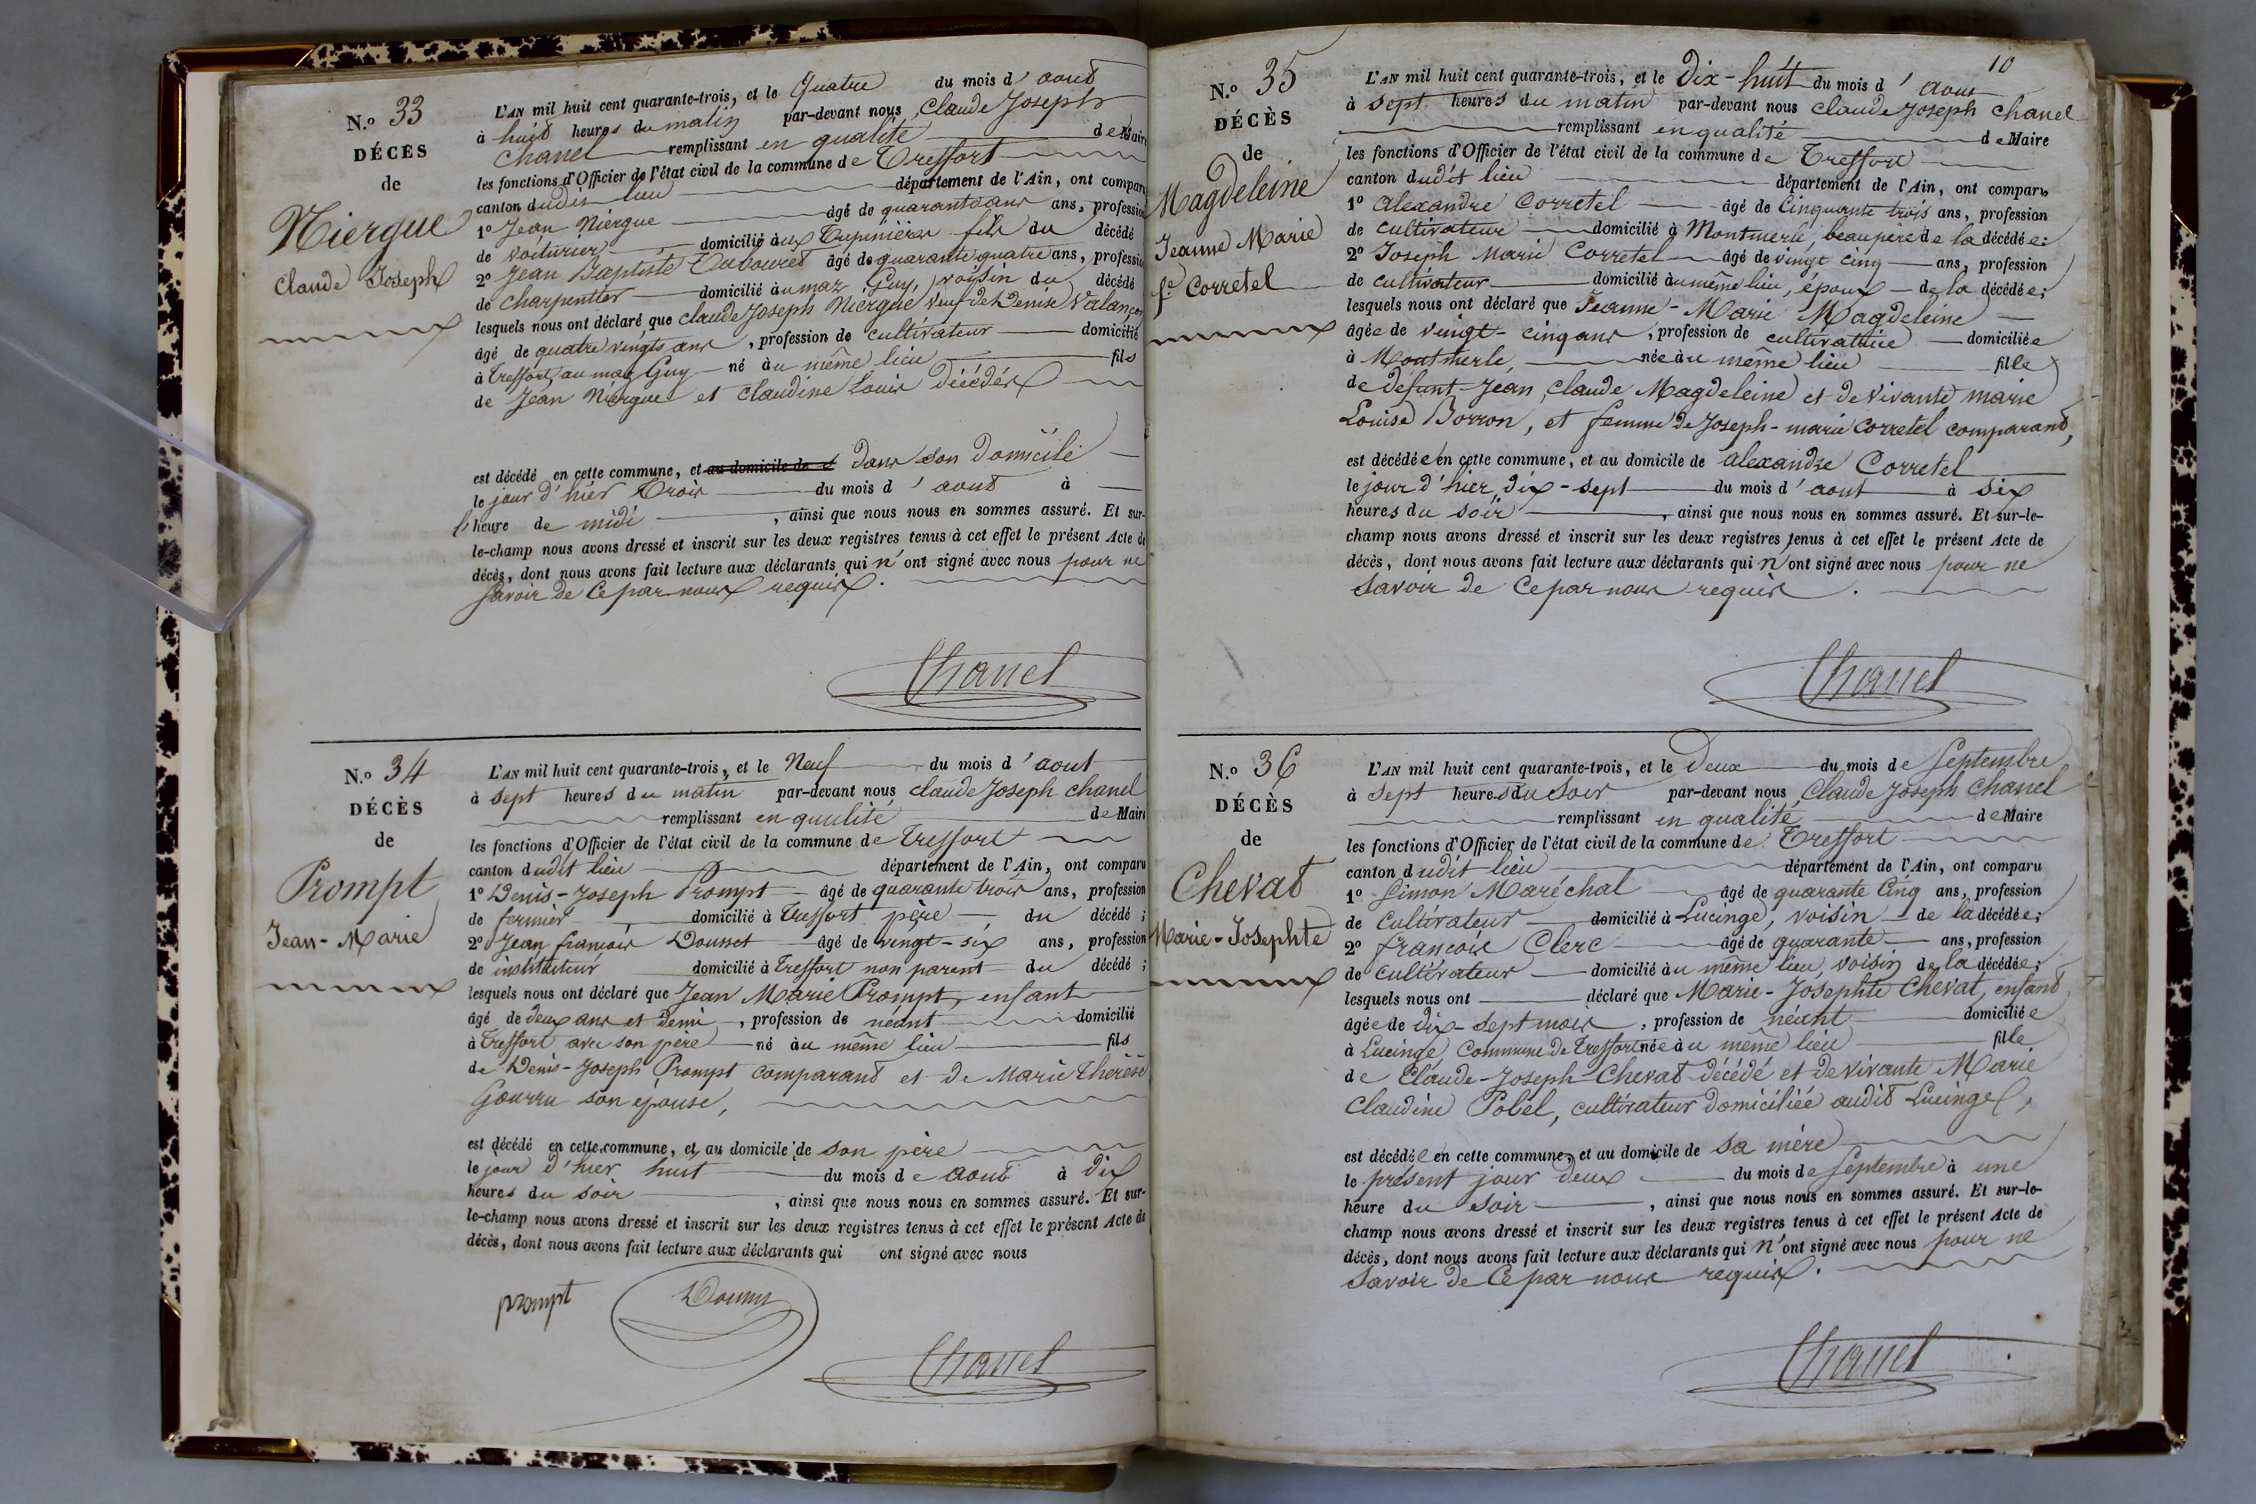 N.o 33
DÉCÈS
de
Niergue
Claude Joseph
L'AN mil huit cent quarante-trois, et le Quatre du mois d'aout
à huit heures du matin par-devant nous Claude Joseph
Chanel remplissant en qualité de Maire
les fonctions d'Officier de l'état civil de la commune de Treffort
canton dudit lieu département de l'Ain, ont comparu
1o Jean Niergue âgé de quarante ans, profession
de voiturier domicilié aux Tupinières fils du décédé
2o Jean Baptiste Dubouret âgé de quarante quatre ans, profession
de charpentier domicilié au maz Guy, voisin du décédé
lesquels nous ont déclaré que Claude Joseph Niergue veuf de Denise Valançon
âgé de quatre vingts ans, profession de cultivateur domicilié
à Treffort, au maz Guy né au même lieu fils
de Jean Niergue et Claudine Louis décédés
est décédé en cette commune, et au domicile de dans son domicile
le jour d'hier trois du mois d'aout à
l'heure de midi, ainsi que nous nous en sommes assuré. Et sur-
le-champ nous avons dressé et inscrit sur les deux registres tenus à cet effet le présent Acte de
décès, dont nous avons fait lecture aux déclarants qui n'ont signé avec nous pour ne
savoir de ce par nous requis.
Chanel
N.o 34
DÉCÈS
de
Prompt
Jean-Marie
L'AN mil huit cent quarante-trois, et le Neuf du mois d'aout
à sept heures du matin par-devant nous Claude Joseph Chanel
remplissant en qualité de Maire
les fonctions d'Officier de l'état civil de la commune de Treffort
canton dudit lieu département de l'Ain, ont comparu
1o Denis-Joseph Prompt âgé de quarante trois ans, profession
de fermier domicilié à Treffort père du décédé;
2o Jean françois Dousset âgé de vingt-six ans, profession
de instituteur domicilié à Treffort non parent du décédé;
lesquels nous ont déclaré que Jean Marie Prompt, enfant
âgé de deux ans et demi, profession de néant domicilié
à Treffort avec son père né au même lieu fils
de Denis-Joseph Prompt comparant et de Marie Thérèse
Gourru son épouse,
est décédé en cette commune, et au domicile de son père
le jour d'hier huit du mois de aout à dix
heures du soir, ainsi que nous nous en sommes assuré. Et sur-
le-champ nous avons dressé et inscrit sur les deux registres tenus à cet effet le présent Acte de
décès, dont nous avons fait lecture aux déclarants qui ont signé avec nous
prompt
Chanel
10
N.o 35
DÉCÈS
de
Magdeleine
Jeanne Marie
fe Corretel
L'AN mil huit cent quarante-trois, et le Dix-huit du mois d'aout
à sept heures du matin par-devant nous Claude Joseph Chanel
remplissant en qualité de Maire
les fonctions d'Officier de l'état civil de la commune de Treffort
canton dudit lieu département de l'Ain, ont comparu
1o Alexandre Corretel âgé de Cinquante trois ans, profession
de cultivateur domicilié à Montmerle, beaupère de la décédée;
2o Joseph Marie Corretel âgé de vingt cinq ans, profession
de cultivateur domicilié au même lieu, époux de la décédée;
lesquels nous ont déclaré que Jeanne-Marie Magdeleine
âgée de vingt-cinq ans, profession de cultivatrice domiciliée
à Montmerle, née au même lieu fille
de defunt Jean Claude Magdeleine et de vivante marie
Louise Borron, et femme de Joseph-marie Corretel comparant,
est décédée en cette commune, et au domicile de Alexandre Corretel
le jour d'hier, dix-sept du mois d'aout à six
heures du soir, ainsi que nous nous en sommes assuré. Et sur-le-
champ nous avons dressé et inscrit sur les deux registres tenus à cet effet le présent Acte de
décès, dont nous avons fait lecture aux déclarants qui n'ont signé avec nous pour ne
savoir de ce par nous requis.
Chanel
N.o 36
DÉCÈS
de
Chevat
Marie-Josephte
L'AN mil huit cent quarante-trois, et le Deux du mois de Septembre
à sept heures du soir par-devant nous Claude Joseph Chanel
remplissant en qualité de Maire
les fonctions d'Officier de l'état civil de la commune de Treffort
canton dudit lieu département de l'Ain, ont comparu
1o Simon Maréchal âgé de quarante cinq ans, profession
de cultivateur domicilié à Lucinge, voisin de la décédée;
2o françois Clerc âgé de quarante ans, profession
de cultivateur domicilié au même lieu, voisin de la décédée;
lesquels nous ont déclaré que Marie-Josephte Chevat, enfant
âgée de dix-sept mois, profession de néant domiciliée
à Lucinge, Commune de Treffort née au même lieu fille
de Claude-Joseph Chevat décédé et de vivante Marie
Claudine Pobel, cultivateur domiciliée audit Lucinge,
est décédée en cette commune, et au domicile de sa mère
le présent jour deux du mois de Septembre à une
heure du soir, ainsi que nous nous en sommes assuré. Et sur-le-
champ nous avons dressé et inscrit sur les deux registres tenus à cet effet le présent Acte de
décès, dont nous avons fait lecture aux déclarants qui n'ont signé avec nous pour ne
savoir de ce par nous requis.
Chanel